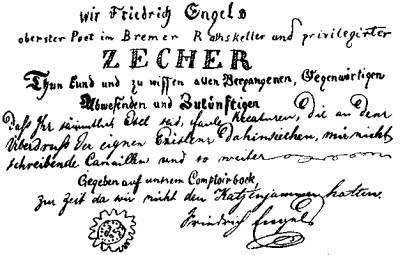 Wir Friedrich Engels
oberster Poet im Bremer Rathskeller und privilegirter
ZECHER
Thun kund und zu wissen allen Vergangenen, Gegenwärtigen
Abwesenden und Zukünftigen
daß Ihr sämmtlich Esel seid, faule Kreaturen, die an dem
Überdruß der eignen Existenz dahinsiechen, mir nicht
schreibende Canaillen und so weiter
Gegeben auf unsrem Comptoirbock
zur Zeit da wir nicht den Katzenjammer hatten.
Friedrich Engels